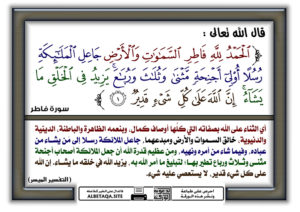 قال الله تعالى :
﴿ ٱلۡحَمۡدُ لِلَّهِ فَاطِرِ ٱلسَّمَٰوَٰتِ وَٱلۡأَرۡضِ جَاعِلِ ٱلۡمَلَٰٓئِكَةِ
رُسُلًا أُوْلِيٓ أَجۡنِحَةٖ مَّثۡنَىٰ وَثُلَٰثَ وَرُبَٰعَۚ يَزِيدُ فِي ٱلۡخَلۡقِ مَا
يَشَآءُۚ إِنَّ ٱللَّهَ عَلَىٰ كُلِّ شَيۡءٖ قَدِيرٞ ١ ﴾
سورة فاطر
أي الثناء على الله بصفاته التي كلها أوصاف كمال، وبنعمه الظاهرة والباطنة، الدينية
والدنيوية، خالق السموات والأرض ومبدعهما، جاعل الملائكة رسلا إلى من يشاء من
عباده، وفيما شاء من أمره ونهيه، ومن عظيم قدرة الله أن جعل الملائكة أصحاب أجنحة
مثنى وثلاث ورباع تطير بها؛ لتبليغ ما أمر الله به، يزيد الله في خلقه ما يشاء، إن الله
على كل شيء قدير، لا يستعصي عليه شيء.
(التفسير الميسر)
ALBETAQA.SITE